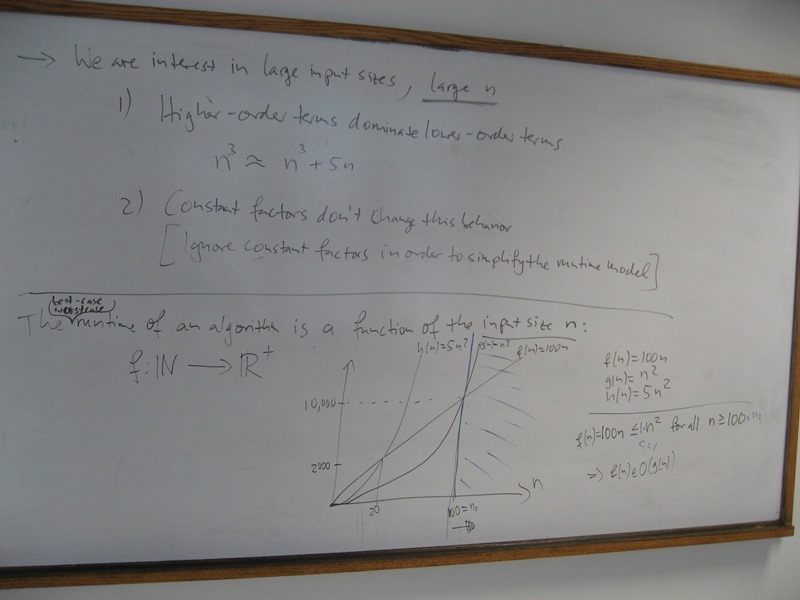 → We are interest in large input sizes, large n
1) Higher-order terms dominate lower-order terms
n³ ≈ n³ + 5n
2) Constant factors don't change this behavior
[Ignore constant factors in order to simplify the runtime model]
best-case
worst case
The runtime of an algorithm is a function of the input size n:
f: ℕ → ℝ⁺
h(n)=5n² g(n)=n² f(n)=100n
10,000
2000
20
100=n₀
n
f(n)=100n
g(n)=n²
h(n)=5n²
f(n)=100n ≤ 1·n² for all n≥100=n₀
c=1
⇒ f(n)∈O(g(n))